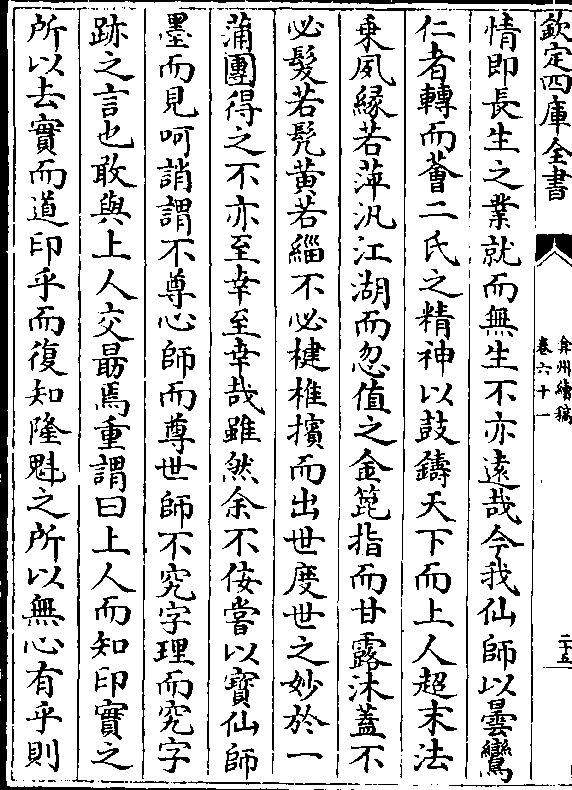 欽定四庫全書
弇州續稿
卷六十一
二十五
情即長生之業就而無生不亦遠哉今我仙師以曇鸞
仁者轉而薈二氏之精神以鼓鑄天下而上人超末法
乗夙縁若萍汎江湖而忽值之金篦指而甘露沐蓋不
必髮若髠黄若緇不必楗椎擯而出世度世之妙於一
蒲團得之不亦至幸至幸哉雖然余不佞嘗以寶仙師
墨而見呵誚謂不尊心師而尊世師不究字理而究字
跡之言也敢與上人交勗焉重謂曰上人而知印實之
所以去實而道印乎而復知隆魁之所以無心有乎則